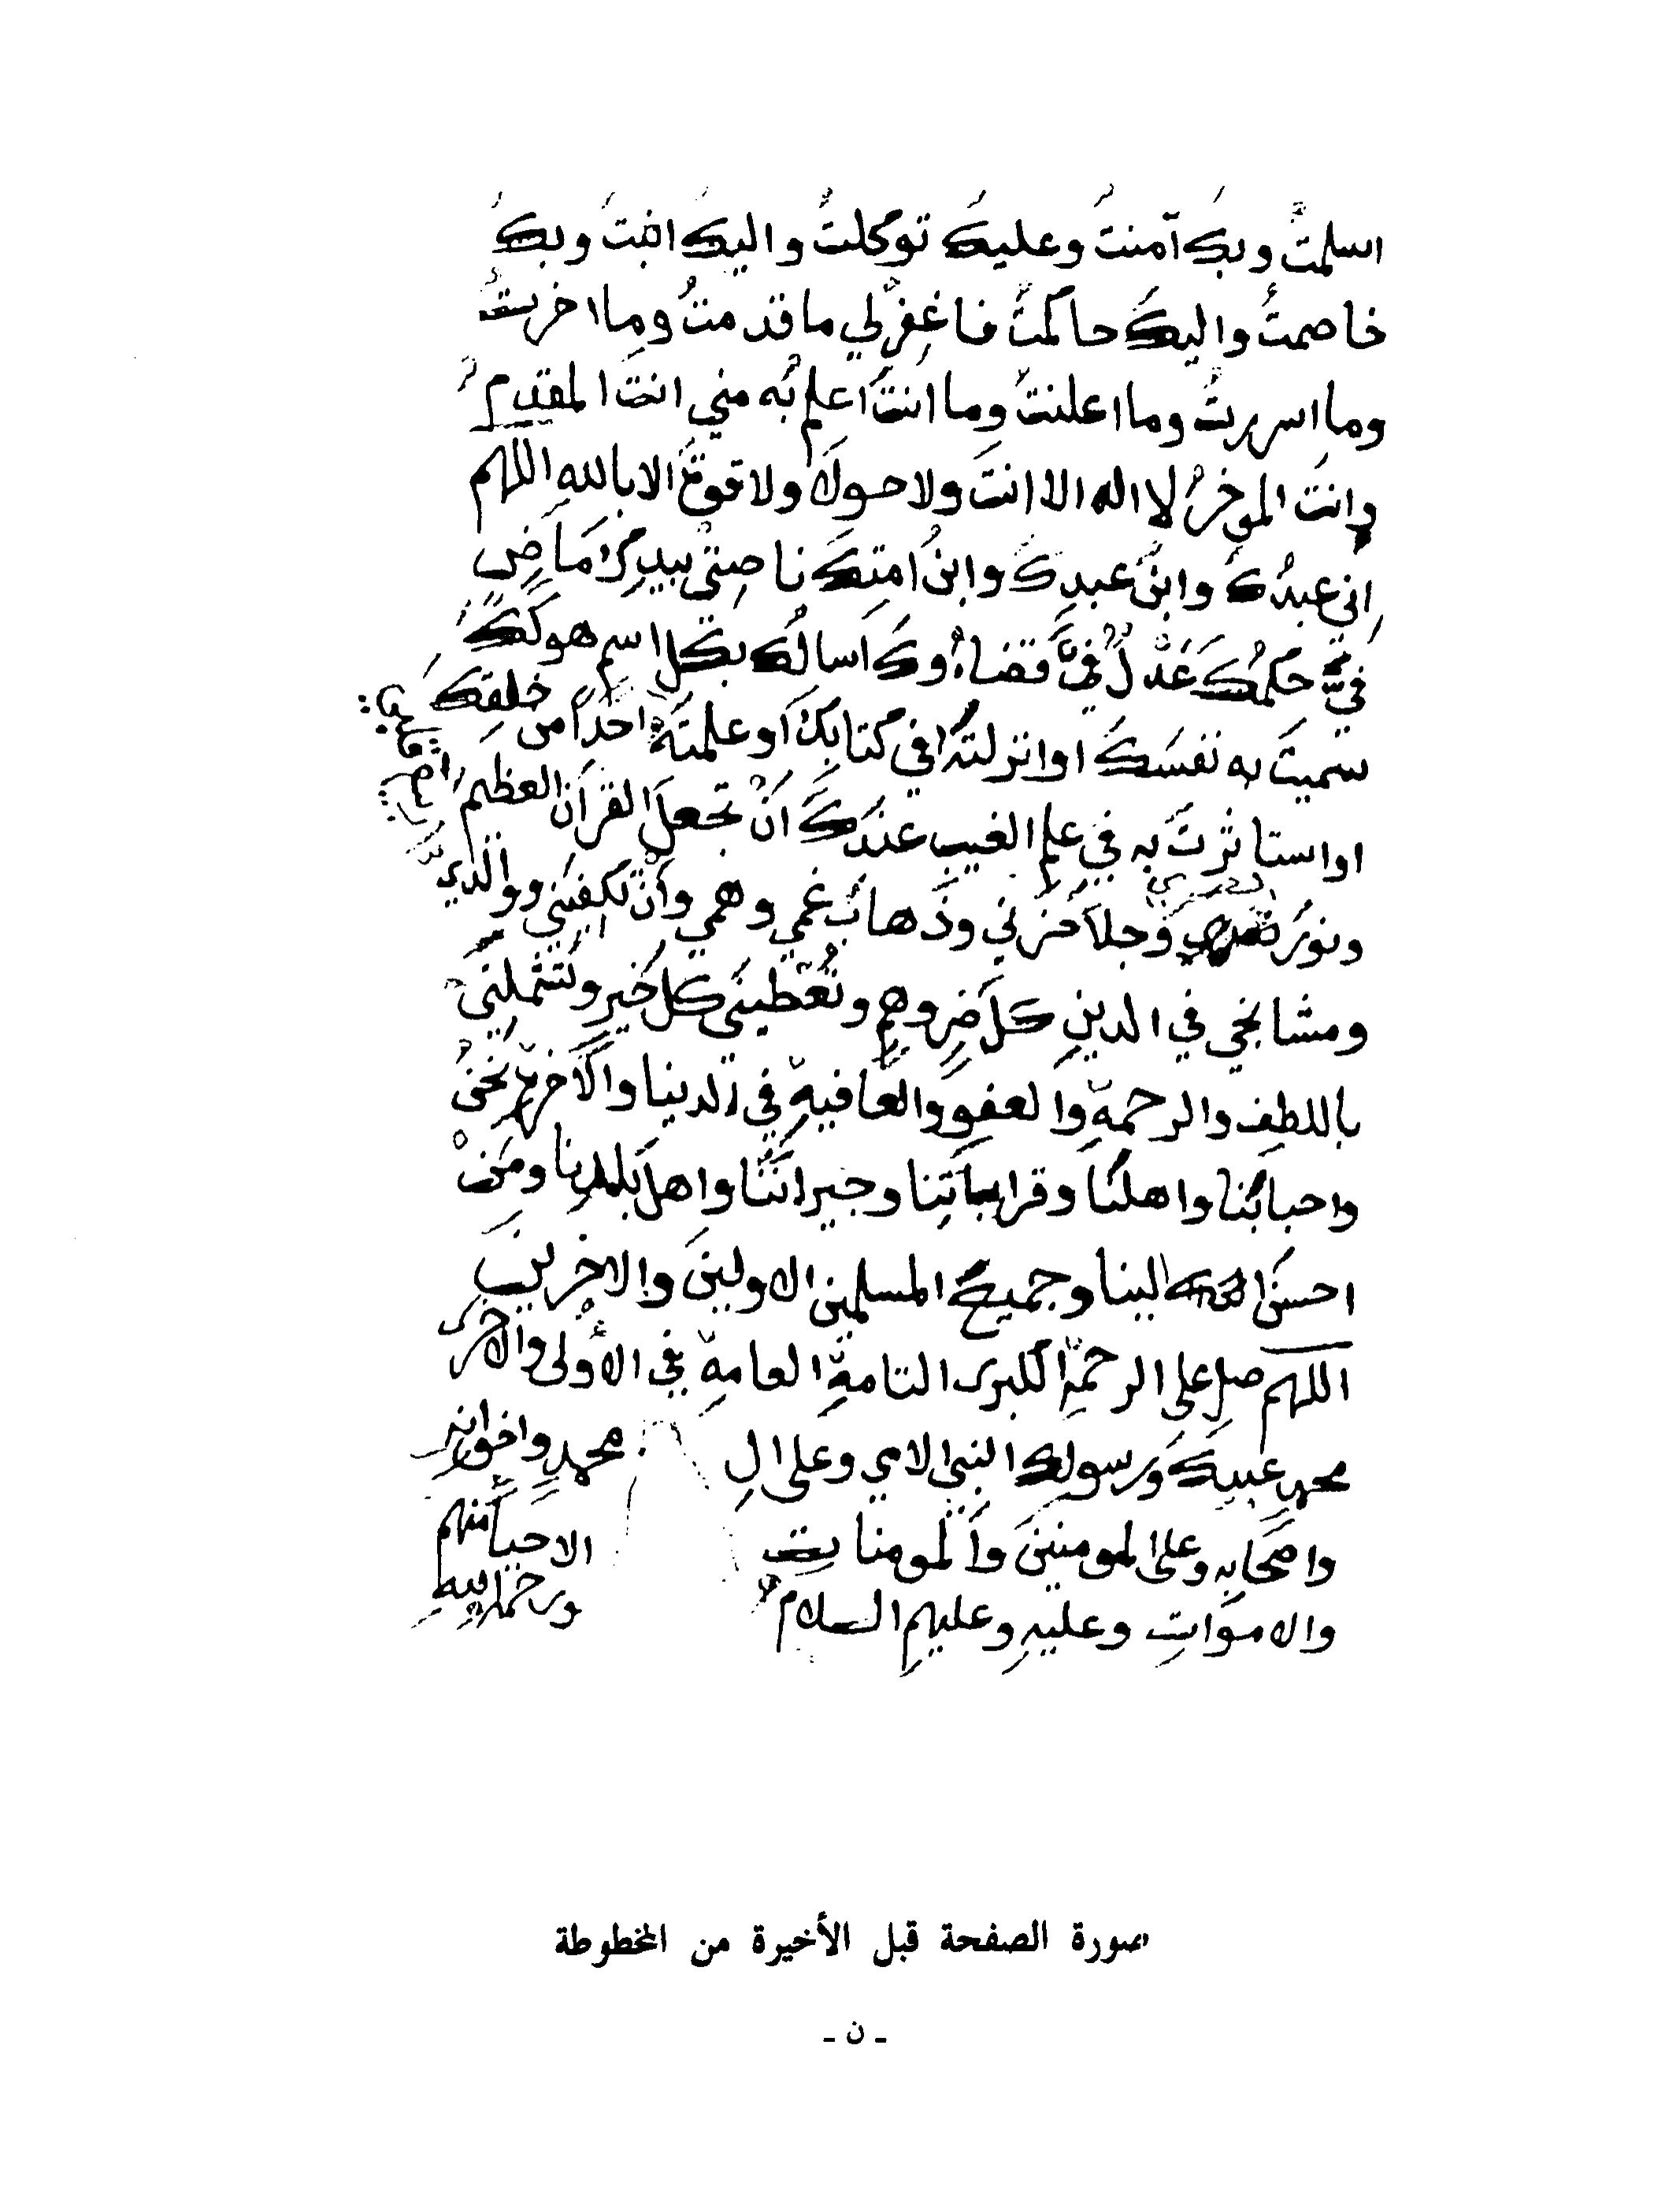 اسلمتُ وبِكَ آمنتُ وعليكَ توكلتُ واليكَ انبتُ وبِكَ
خاصمتُ واليكَ حاكمتُ فاغفِرْ لي ما قدمتُ وما اخرتُ
وما اسررتُ وما اعلنتُ وما انتَ اعلم به مني انتَ المقدمُ
وانتَ الموخرُ لا اله الا انتَ ولا حولَ ولا قوةَ الا باللهِ اللهم
اِني عبدُكَ وابنُ عبدِكَ وابنُ امتِكَ ناصيتي بيدِكَ مَاضٍ
فِيَّ حكمُكَ عَدْلٌ فيَّ قضاءُوكَ اسالُكَ بكل اسم هو لَكَ
سميتَ به نفسَكَ او انزلتَهُ في كتابِكَ او علمتَهُ احَدًا من خلقِكَ
او استاثرتَ به في علم الغيبِ عندَكَ انْ تجعلَ القرآنَ العظيم
ونورَ وجلاَ حزني وذهابَ غمي وهمي وأنْ تكفِيَني ووالديَّ
ومشايخي في الدينِ كلَ ضرٍ وهمٍ وتُعْطينَي كل خيرٍ وتشملَني
باللطفِ والرحمةِ والعفوِ والعافيةِ في الدينا والآخرة نحنُ
واحبابُنا واهلنا وقراباتِنا وجيرانَنا واهل بلدِنا ومَنْ
احسنَ الينا وجميع المسلمين الاولينَ والاخرينَ
اللهم صلِ على الرحمةِ الكبرى التامةِ العامةِ في الأولى والاخرى
محمدٍ عبدِكَ ورسولِكَ النبي الامي وعلى الِ محمدٍ واخوانِهِ
واصحابِهِ وعلى المومنينَ والمومناتِ الاحياَ منهم
والامواتِ وعليهِ وعليهِم السلامُ ورحمة
صورة الصفحة قبل الأخيرة من المخطوطة
ـ ن ـ